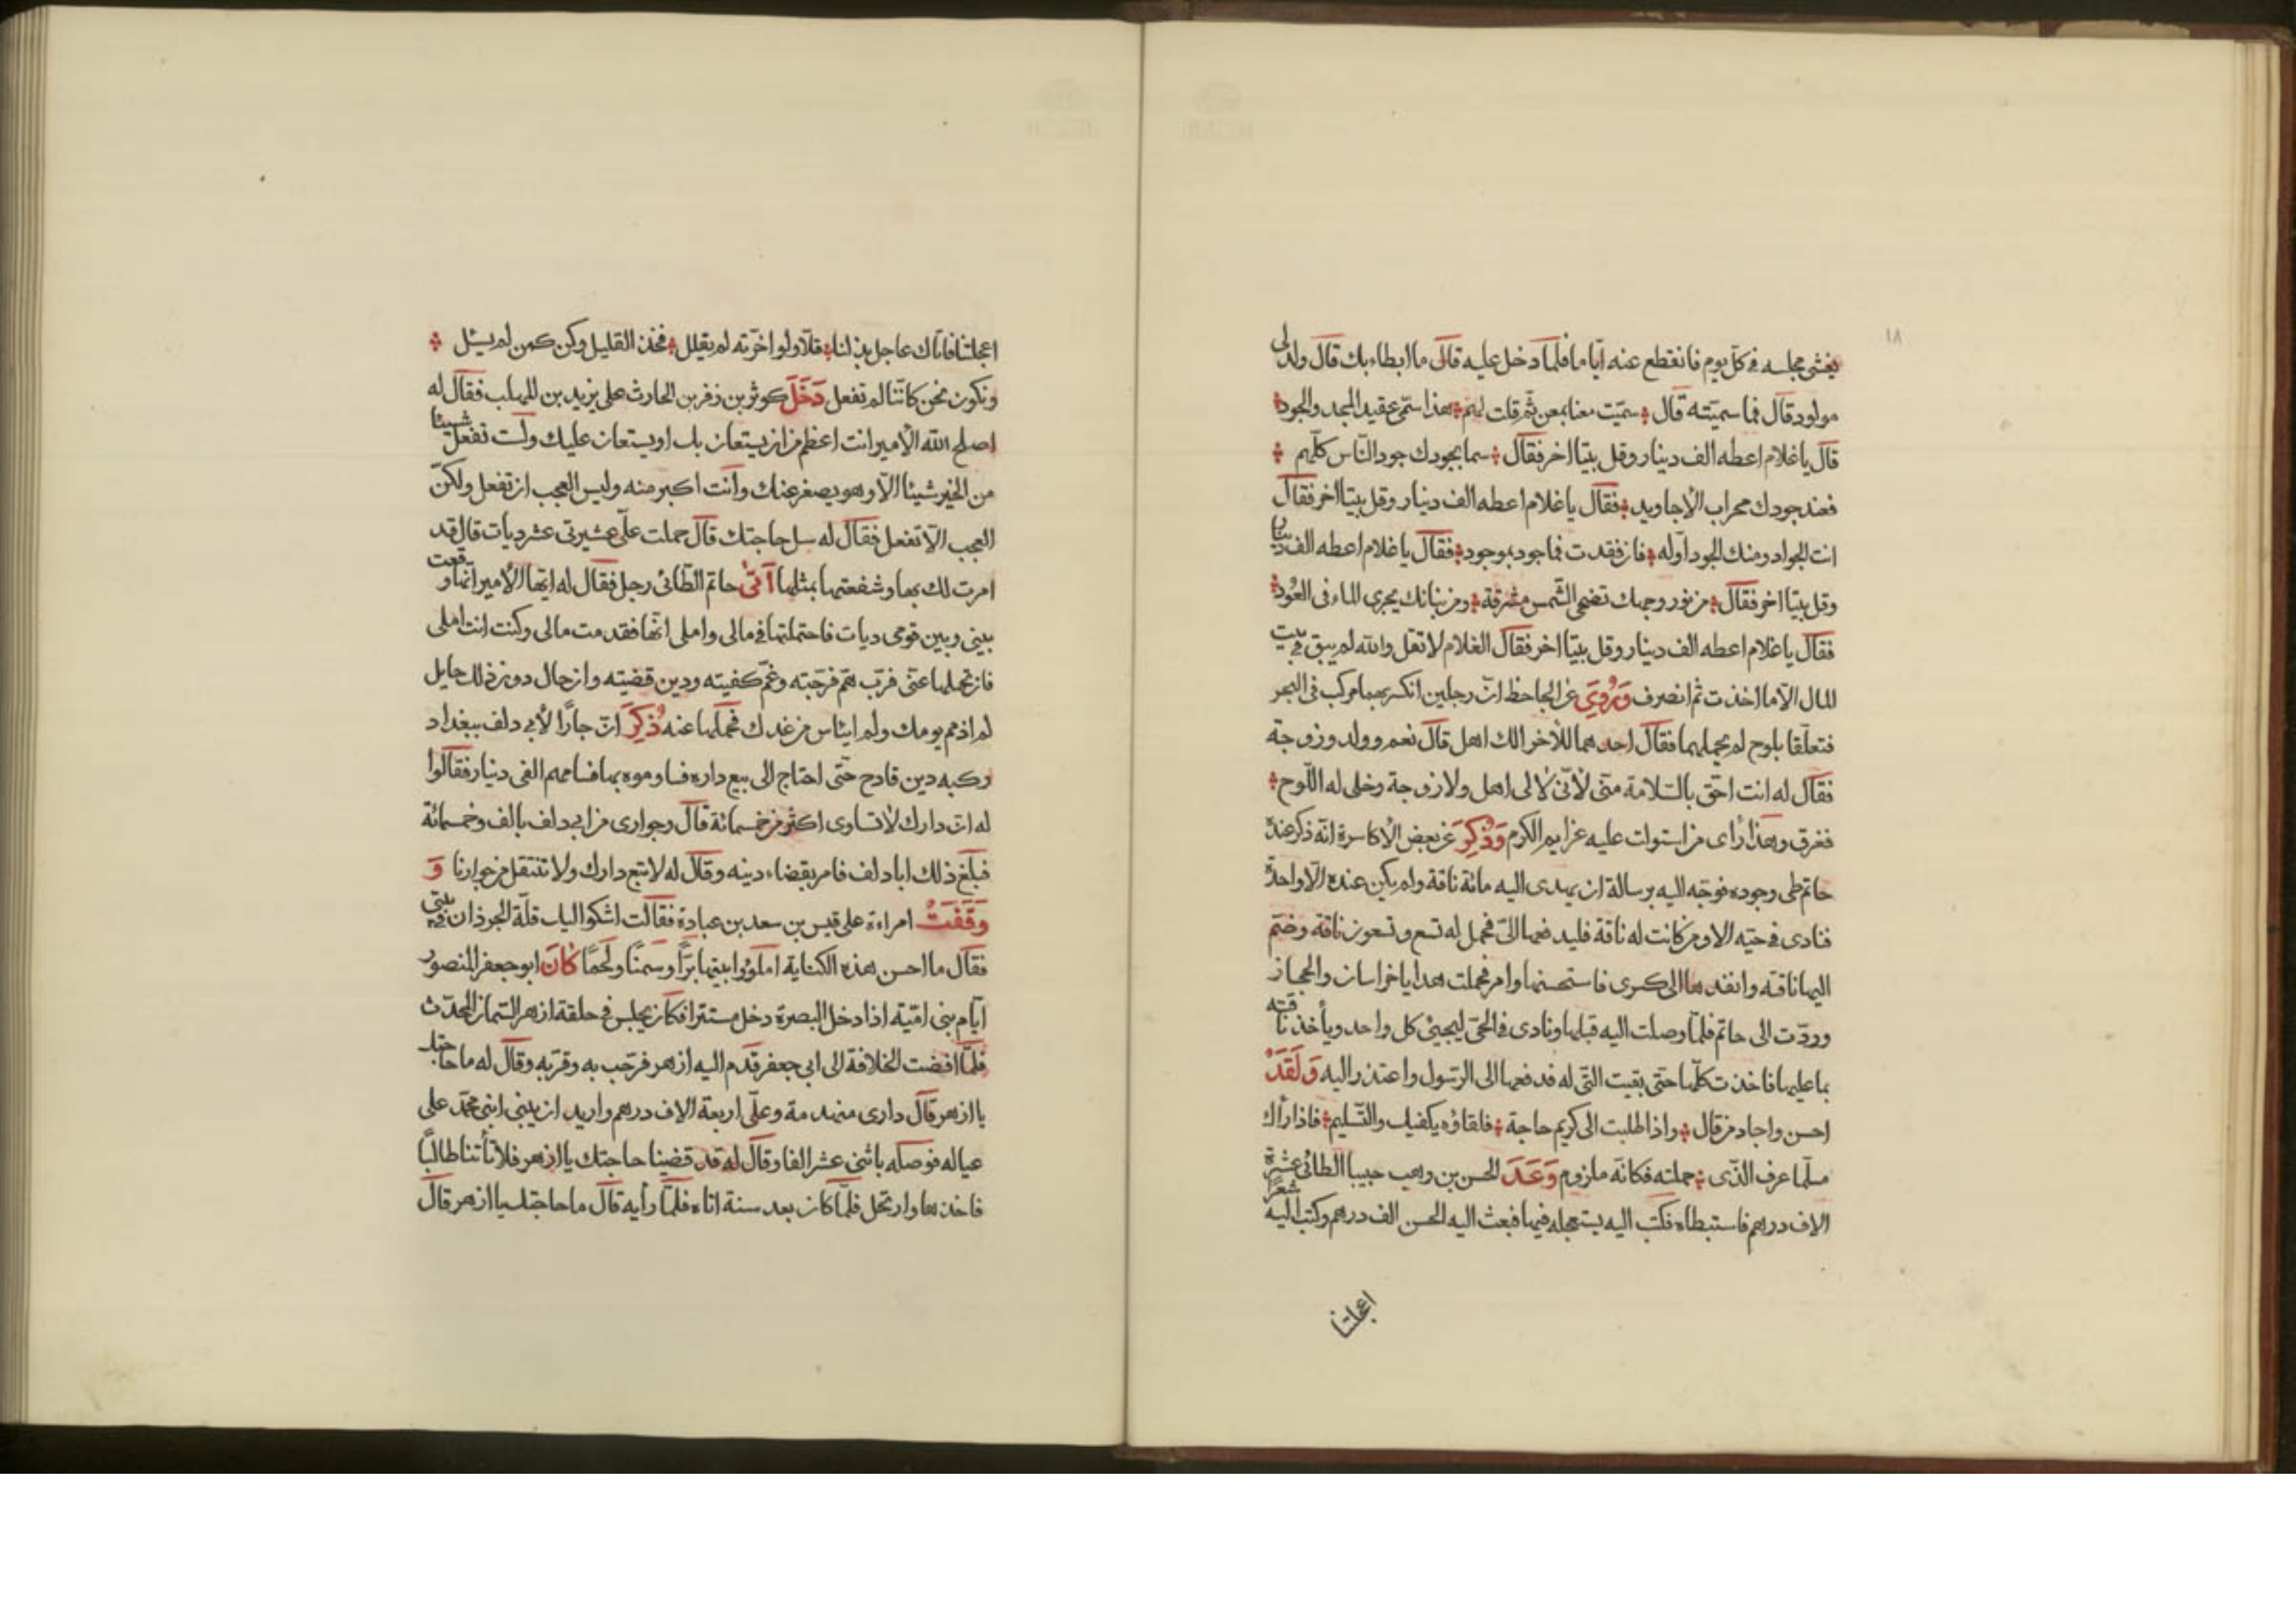 ١٨
يغشى مجلسه فى كلّ يوم فانقطع عنه ايّاما فلمّا دخل عليه قال ما ابطاء بك قال ولد لى
مولود قال فما سميّته قال سميّت معنا بمعن ثمّ قلت لهم هذا سمّى عقيد المجد والجود
قال يا غلام اعطه الف دينار وقل بيتا اخر فقال سما بجودك جود النّاس كلّهم
فعند جودك محراب الأجاويد فقال يا غلام اعطه الف دينار وقل بيتا اخر فقال
انت الجواد ومنك الجود اوّله فان فقدت فما جود بموجود فقال يا غلام اعطه الف دينار
وقل بيتا اخر فقال من نور وجهك تضحى الشّمس مشرقة ومن بنانك يجرى الماء فى العُود
فقال يا غلام اعطه الف دينار وقل بيتا اخر فقال الغلام لا تقل والله لم يبق فى بيت
المال الّا ما اخذت ثم انصرف وَرُوِىَ عن الجاحظ انّ رجلين انكسر بهما مركب فى البحر
فتعلّقا بلوح لم يحملهما فقال احدهما للاخر الك اهل قال نعم وولد وزوجة
فقال له انت احقّ بالسّلامة منّى لأنّى لا لى اهل ولا زوجة وخلى له اللّوح
فغرق وهذا رأى من استولت عليه عزايم الكرم وَذُكِرَ عن بعض الأكاسرة انّه ذكر عنده
حاتم طى وجوده فوجّه اليه برسالة ان يهدى اليه مائة ناقة ولم يكن عنده الّا واحدة
فنادى فى حيّه الا ومن كانت له ناقة فليدفعها الىّ فحمل له تسع وتسعون ناقة وضمّ
اليها ناقته وانفدها الى كسرى فاستحسنها وامر فحملت هدايا خراسان والحجاز
وردّت الى حاتم فلمّا وصلت اليه قبلها ونادى فى الحىّ ليجيئ كل واحد ويأخذ ناقته
بما عليها فاخذت كلّها حتى بقيت التّى له فدفعها الى الرّسول واعتذر اليه وَلَقَدْ
احسن واجاد من قال واذا طلبت الى كريم حاجة فلقاؤه يكفيك والتّسليم فاذا رأك
مسلّما عرف الذّى حملته فكانّه ملزوم وَعَدَ الحسن بن وهب حبيبا الطائى عشرة
الاف درهم فاستبطاه فكتب اليه يستعجله فيها فبعث اليه الحسن الف درهم وكتب اليه شعرًا
اعجلتنا
اعجلتنا فاتاك عاجل بذلنا قلّا ولو اخرّته لم يقلل فخذ القليل وكن كمن لم يسئل
ونكون نحن كانّنا لم نفعل دَخَلَ كوثر بن زفر بن الحارث على يزيد بن المهلب فقال له
اصلح الله الأمير انت اعظم من ان يستعان بك او يستعان عليك ولست تفعل شيئا
من الخير شيئا الّا وهو يصغر عنك وانت اكبر منه وليس العجب ان تفعل ولكنّ
العجب الّا تفعل فقال له سل حاجتك قال حملت على عشيرتى عشر ديات قال قد
امرت لك بها وشفعتها بمثلها اَتىٰ حاتم الطائى رجل فقال له ايّها الأمير انّما وقعت
بينى وبين قومى ديات فاحتملتها فى مالى واملى انّها فقدمت مالى وكنت انت املى
فان تحملها عنّى فربّ همّ فرّجته وغمّ كفيته ودين قضيته وان حال دون ذلك حايل
لم اذمم يومك ولم ايئاس من غدك فحملها عنه ذُكِرَ انّ جارًا لأبى دلف ببغداد
ركبه دين قادح حتّى احتاج الى بيع داره فساوموه بها فسامهم الفى دينار فقالوا
له انّ دارك لا تساوى اكثر من خمسمائة قال وجوارى من ابى دلف بالف وخمسمائة
فبلغ ذلك ابا دلف فامر بقضاء دينه وقال له لا تبع دارك ولا تنتقل من جوارنا وَ
وَقَفَتْ امراءة على قيس بن سعد بن عبادة فقالت اشكوا اليك قلّة الجرذان فى بيتى
فقال ما احسن هذه الكناية املؤا بيتها برًّا وسمنًا ولحمًا كَانَ ابو جعفر المنصور
ايّام بنى اميّة اذا دخل البصرة دخل مستترا فكان يجلس فى حلقة ازهر السّمان المحدّث
فلمّا افضت الخلافة الى ابى جعفر قدم اليه ازهر فرحّب به وقرّبه وقال له ما حاجتك
يا ازهر قال دارى منهدمة وعلىّ اربعة الاف درهم واريد ان يبنى ابنى محمّد على
عياله فوصله باثنى عشر الفا وقال له قد قضينا حاجتك يا ازهر فلا تأتنا طالبًا
فاخذها وارتحل فلمّا كان بعد سنة اتاه فلمّا رأيه قال ما حاجتك يا ازهر قال